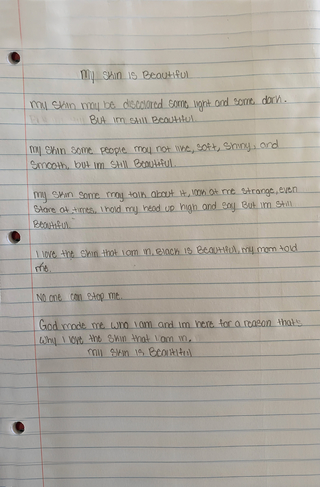 My Skin is Beautiful
My Skin may be discolored some light and some dark.
But im still Beautiful.
My Skin some people may not like, soft, shiny, and
Smooth but im still Beautiful.
My Skin some may talk about it, look at me strange, even
Stare at times, I hold my head up high and say But im Still
Beautiful.
I love the skin that I am in, Black is Beautiful, my mom told
me.
No one can stop me
God made me who I am and im here for a reason thats
why I love the skin that I am in.
My Skin is Beautiful